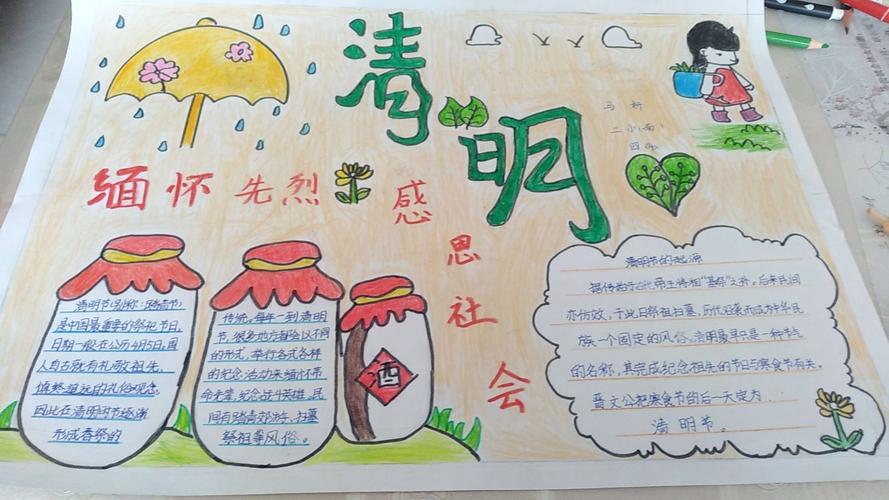 清明
缅怀先烈
感思社会
二小(南)
清明节(别称:踏青节)
是中国最重要的祭祀节日,
日期一般在公历4月5日,国
人自古就有礼敬祖先、
慎终追远的礼俗观念。
因此在清明时节逐渐
形成春祭的
传统。每年一到清明
节,很多地方都会以不同
的形式,举行各式各样
的纪念活动来缅怀革
命先辈,纪念战斗英雄,民
间有踏青郊游、扫墓
祭祖等风俗。
酒
清明节的起源
据传始于古代帝王将相"墓祭"之礼。后来民间
亦仿效,于此日祭祖扫墓,历代沿袭而成为中华民
族一个固定的风俗。清明最早只是一种节气
的名称,其完成纪念祖先的节日与寒食节有关。
晋文公把寒食节的后一天定为
清明节。